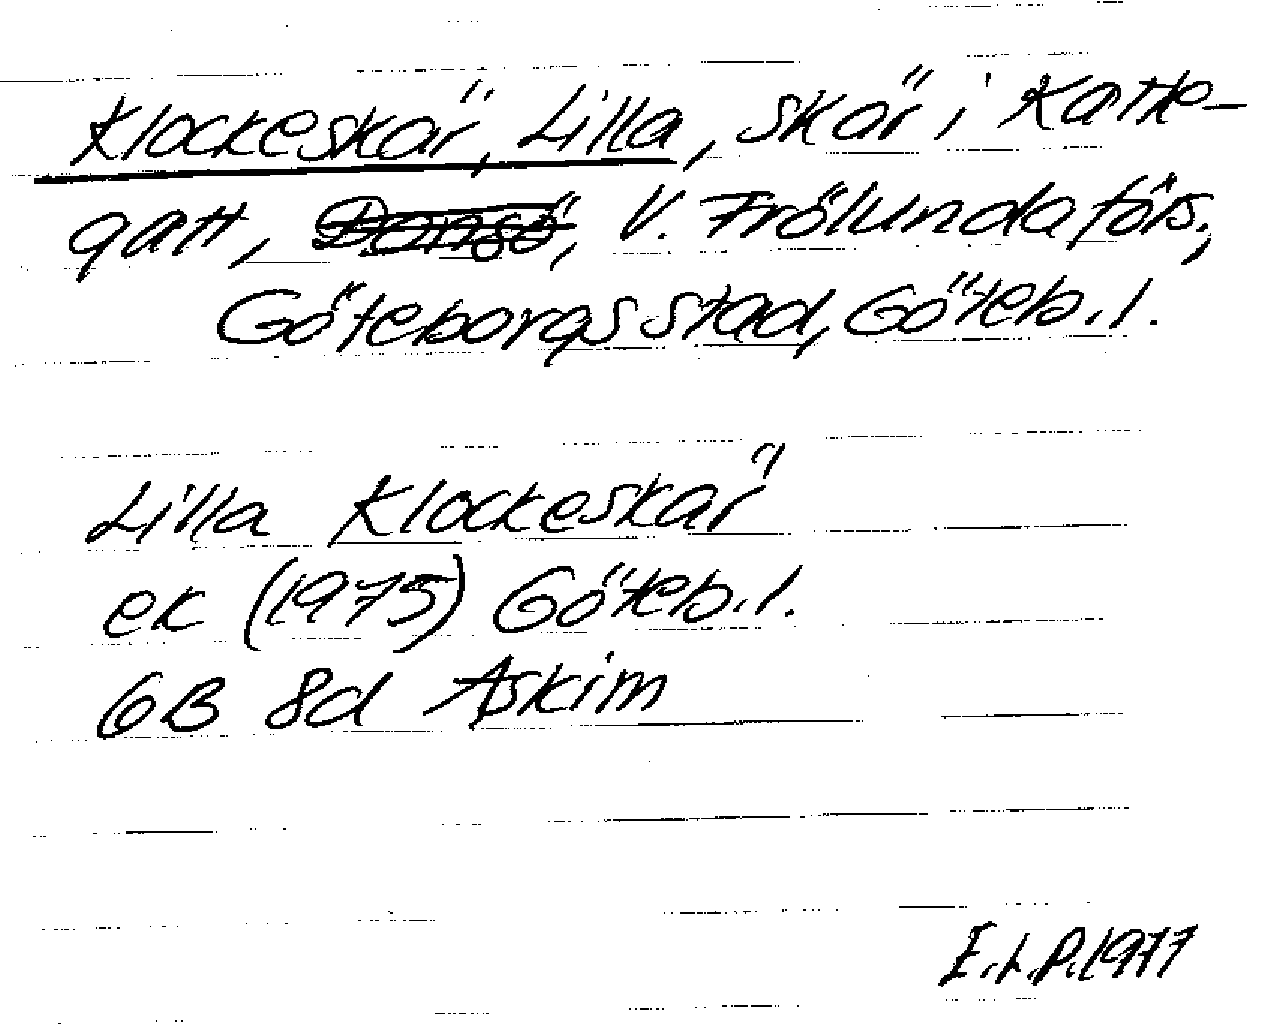 Klockeskär, Lilla, skär i Katte-
gatt, Donsö, V. Frölunda förs.,
Göteborgs stad, Göteb. l.
Lilla Klockeskär
ek (1975) Göteb. l.
6B 8d Askim
E.L.P. 1977